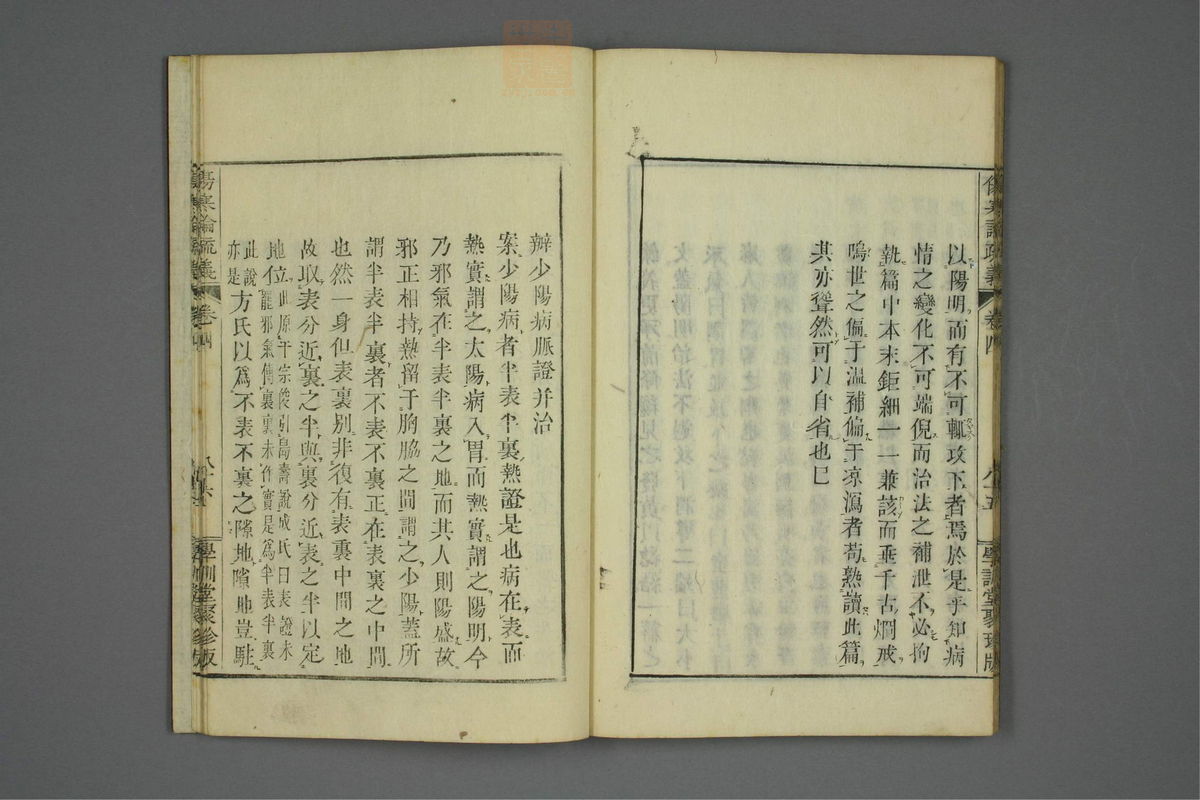 以陽明而有不可輒攻下者焉於是乎知病
情之變化不可端倪而治法之補泄不必拘
執篇中本末鉅細一一兼該而垂千古炯戒
嗚世之偏于溫補偏于凉瀉者苟熟讀此篇
其亦聳然可以自省也巳
傷寒論疏義 卷四 八十五 學訓堂聚珍版
辨少陽病脈證并治
案少陽病者半表半裏熱證是也病在表而
熱實謂之太陽病入胃而熱實謂之陽明今
乃邪氣在半表半裏之地而其人則陽盛故
邪正相持熱留于胸脇之間謂之少陽蓋所
謂半表半裏者不表不裏正在表裏之中間
也然一身但表裏別非復有表裏中間之地
故取表分近裏之半與裏分近表之半以定
地位此原于宗俊引昌壽說成氏曰表證未
罷邪氣傳裏裏未作實是爲半表半裏
此說亦是方氏以爲不表不裏之隙地隙地豈駐
傷寒論疏義 卷四 八十六 學訓堂聚珍版